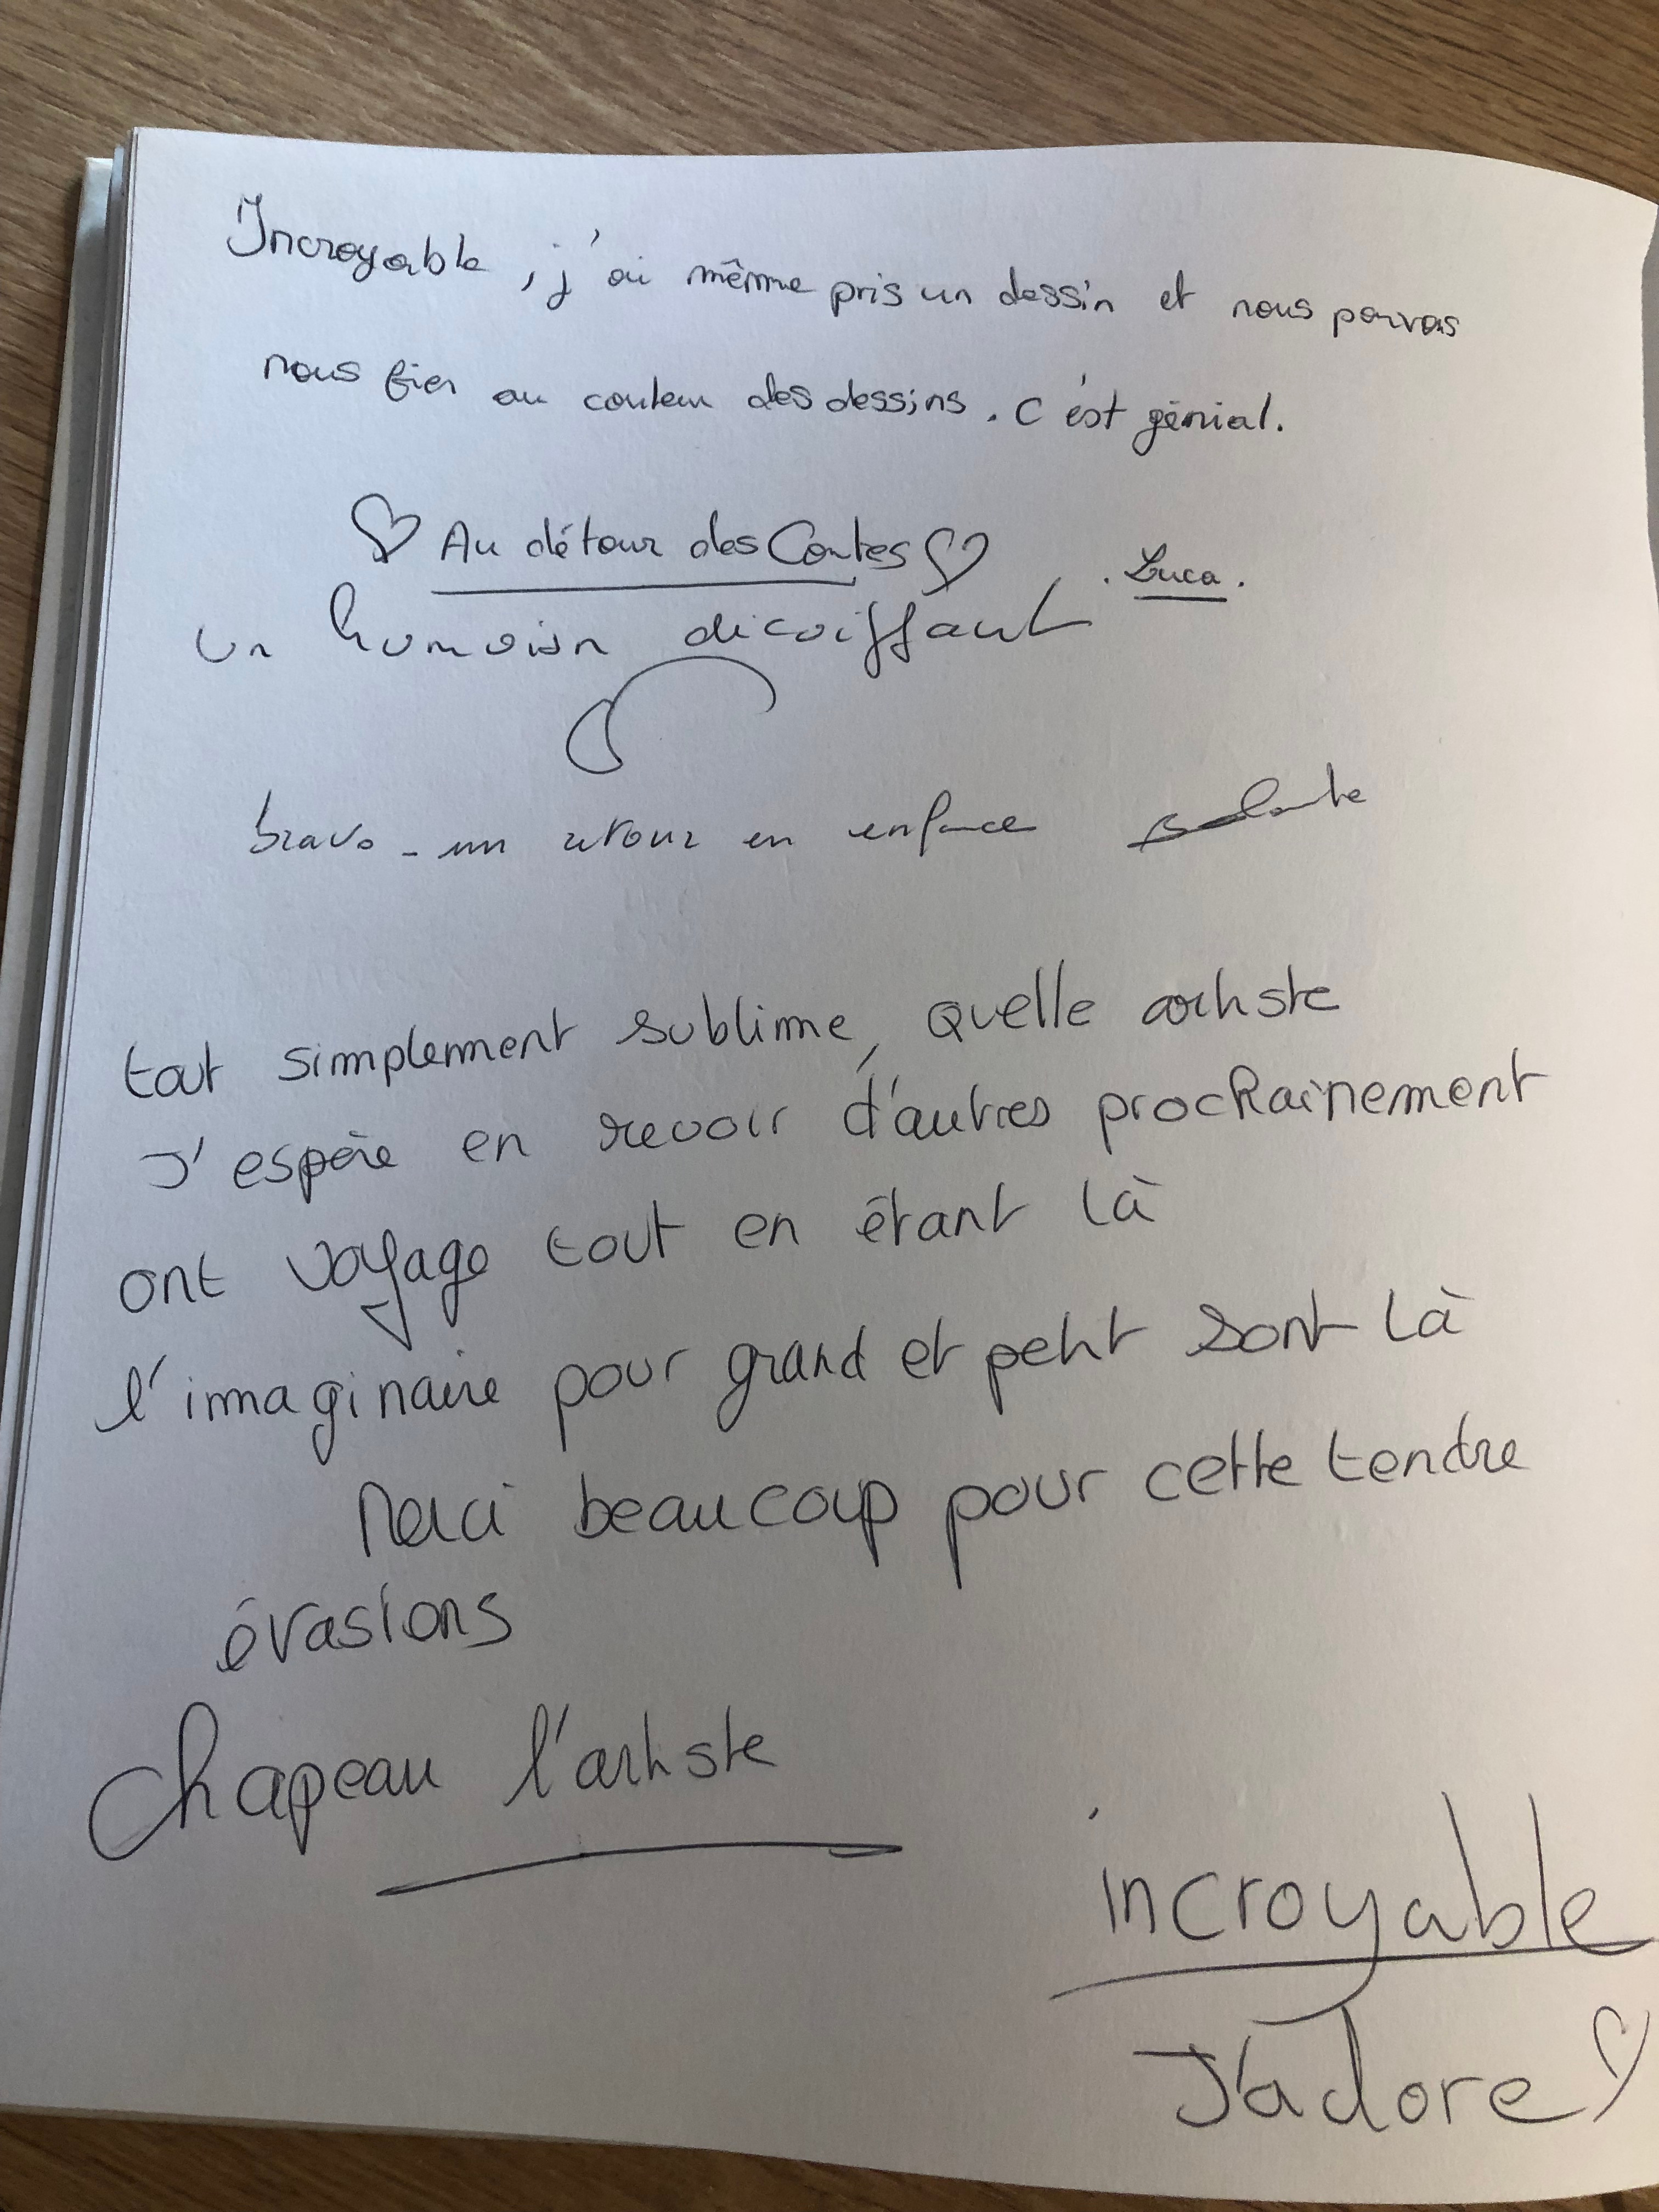 Incroyable, j'ai même pris un dessin et nous pouvons
nous fier au couleur des dessins. C'est génial.
♡ Au détour des Contes ♡
. Luca .
un décoiffant
bravo - un retour en enfance
tout simplement sublime, quelle artiste
J'espère en revoir d'autres prochainement
ont voyage tout en étant là
l'imaginaire pour grand et petit sont là
Merci beaucoup pour cette tendre
évasions
Chapeau l'artiste
incroyable
J'adore ♡